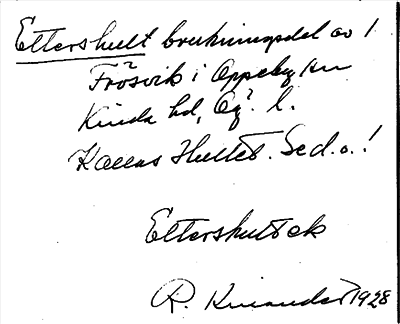 Ettershult brukningsdel av 1
Frösvik i Oppeby sn
Kinda hd, Ög. l.
Kallas Hultet. Se d.o.!
Ettershult ek
R. Kinander 1928